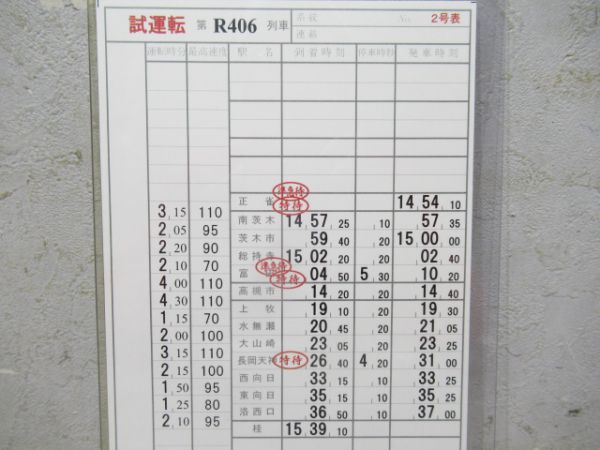 試運転 第 R406 列車 系統 連結 No. 2号表
運転時分 最高速度 駅名 到着時刻 停車時秒 発車時刻
準急待
正雀 待待 14 54 10
3 15 110
南茨木 14 57 25 10 57 35
2 05 95
茨木市 59 40 20 15 00 00
2 20 90
総持寺 15 02 20 20 02 40
2 10 70
準急待
富 待待 04 50 5 30 10 20
4 00 110
高槻市 14 20 20 14 40
4 30 110
上牧 19 10 20 19 30
1 15 70
水無瀬 20 45 20 21 05
2 00 100
大山崎 23 05 20 23 25
3 15 110
長岡天神 特待 26 40 4 20 31 00
2 15 100
西向日 33 15 10 33 25
1 50 95
東向日 35 15 10 35 25
1 25 80
洛西口 36 50 10 37 00
2 10 95
桂 15 39 10